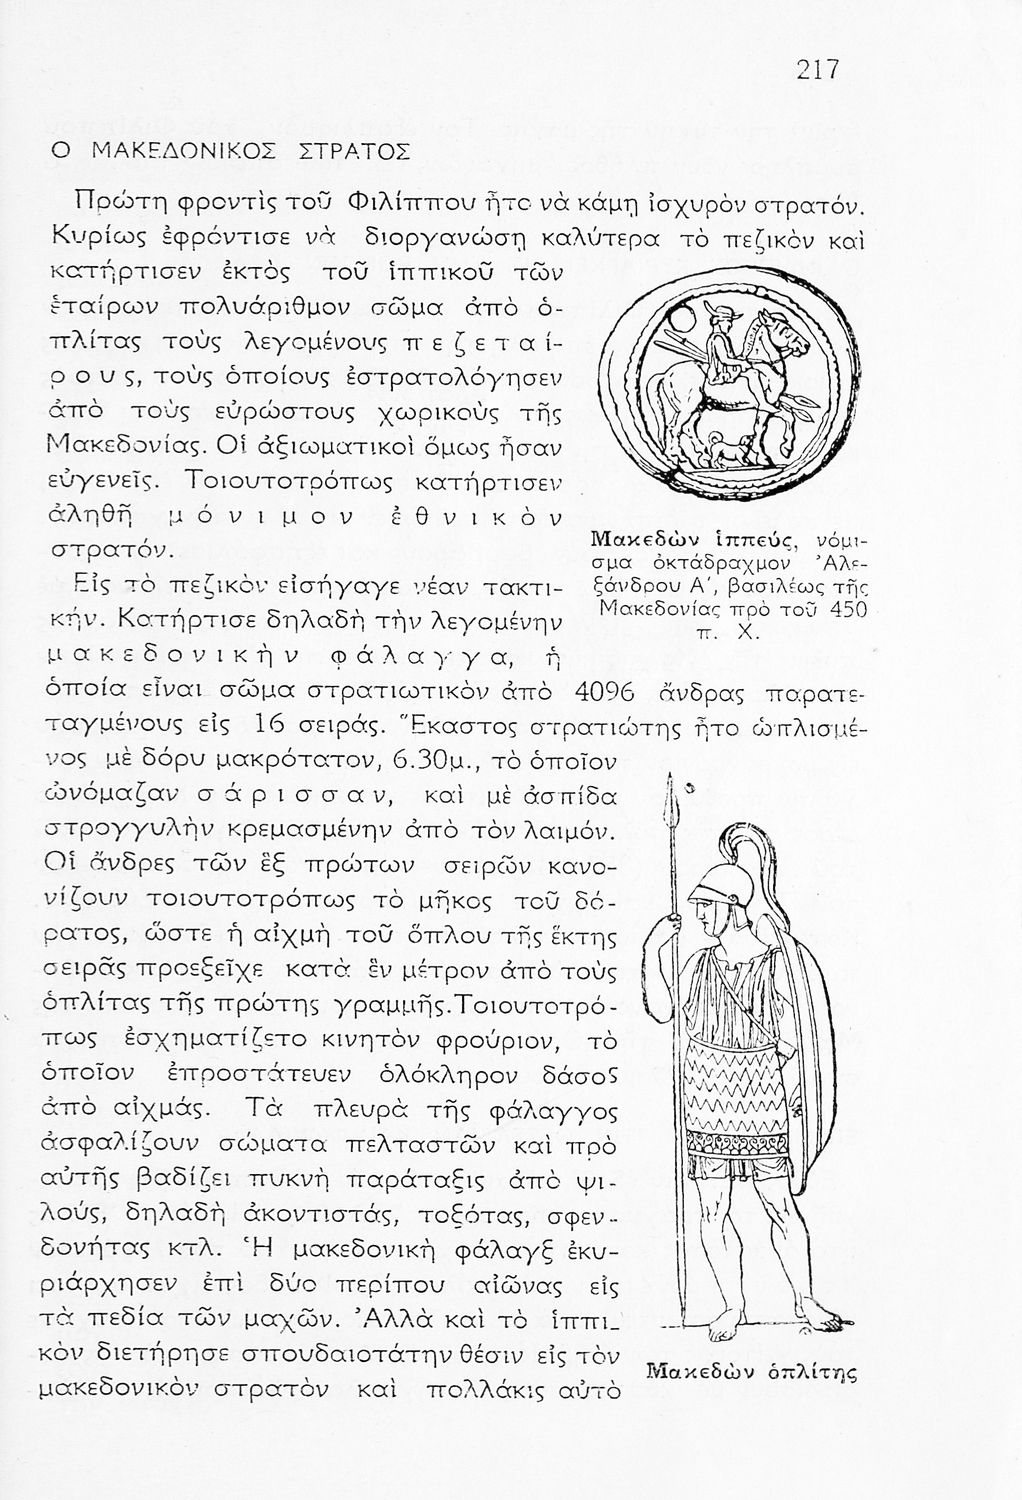 217
Ο ΜΑΚΕΔΟΝΙΚΟΣ ΣΤΡΑΤΟΣ
Πρώτη φροντὶς τοῦ Φιλίππου ἦτο νὰ κάμῃ ἰσχυρὸν στρατόν.
Κυρίως ἐφρόντισε νὰ διοργανώσῃ καλύτερα τὸ πεζικὸν καὶ
κατήρτισεν ἐκτὸς τοῦ ἱππικοῦ τῶν
ἑταίρων πολυάριθμον σῶμα ἀπὸ ὁ-
πλίτας τοὺς λεγομένους π ε ζ ε τ α ί-
ρ ο υ ς, τοὺς ὁποίους ἐστρατολόγησεν
ἀπὸ τοὺς εὐρώστους χωρικοὺς τῆς
Μακεδονίας. Οἱ ἀξιωματικοὶ ὅμως ἦσαν
εὐγενεῖς. Τοιουτοτρόπως κατήρτισεν
ἀληθῆ μ ό ν ι μ ο ν ἐ θ ν ι κ ὸ ν
στρατόν.
Εἰς τὸ πεζικὸν εἰσήγαγε νέαν τακτι-
κήν. Κατήρτισε δηλαδὴ τὴν λεγομένην
μ α κ ε δ ο ν ι κ ὴ ν φ ά λ α γ γ α, ἡ
ὁποία εἶναι σῶμα στρατιωτικὸν ἀπὸ 4096 ἄνδρας παρατε-
ταγμένους εἰς 16 σειράς. Ἕκαστος στρατιώτης ἦτο ὡπλισμέ-
νος μὲ δόρυ μακρότατον, 6.30μ., τὸ ὁποῖον
ὠνόμαζαν σ ά ρ ι σ σ α ν, καὶ μὲ ἀσπίδα
στρογγυλὴν κρεμασμένην ἀπὸ τὸν λαιμόν.
Οἱ ἄνδρες τῶν ἓξ πρώτων σειρῶν κανο-
νίζουν τοιουτοτρόπως τὸ μῆκος τοῦ δό-
ρατος, ὥστε ἡ αἰχμὴ τοῦ ὅπλου τῆς ἕκτης
σειρᾶς προεξεῖχε κατὰ ἓν μέτρον ἀπὸ τοὺς
ὁπλίτας τῆς πρώτης γραμμῆς.Τοιουτοτρό-
πως ἐσχηματίζετο κινητὸν φρούριον, τὸ
ὁποῖον ἐπροστάτευεν ὁλόκληρον δάσος
ἀπὸ αἰχμάς. Τὰ πλευρὰ τῆς φάλαγγος
ἀσφαλίζουν σώματα πελταστῶν καὶ πρὸ
αὐτῆς βαδίζει πυκνὴ παράταξις ἀπὸ ψι-
λούς, δηλαδὴ ἀκοντιστάς, τοξότας, σφεν-
δονήτας κτλ. Ἡ μακεδονικὴ φάλαγξ ἐκυ-
ριάρχησεν ἐπὶ δύο περίπου αἰῶνας εἰς
τὰ πεδία τῶν μαχῶν. Ἀλλὰ καὶ τὸ ἱππι-
κὸν διετήρησε σπουδαιοτάτην θέσιν εἰς τὸν
μακεδονικὸν στρατὸν καὶ πολλάκις αὐτὸ
Μακεδὼν ἱππεύς, νόμι-
σμα ὀκτάδραχμον Ἀλε-
ξάνδρου Α΄, βασιλέως τῆς
Μακεδονίας πρὸ τοῦ 450
π. Χ.
Μακεδὼν ὁπλίτης